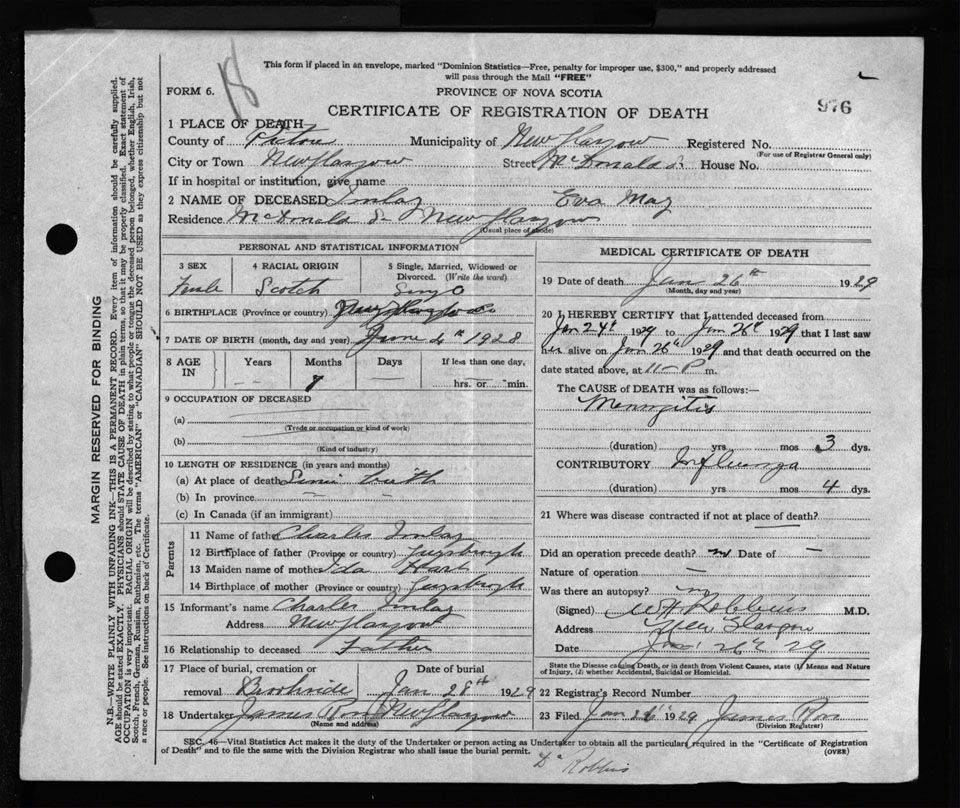 18
This form if placed in an envelope, marked "Dominion Statistics—Free, penalty for improper use, $300," and properly addressed
will pass through the Mail "FREE"
FORM 6.
PROVINCE OF NOVA SCOTIA
976
CERTIFICATE OF REGISTRATION OF DEATH
1 PLACE OF DEATH
County of Pictou Municipality of New Glasgow Registered No.
(For use of Registrar General only)
City or Town New Glasgow Street McDonald St House No.
If in hospital or institution, give name
2 NAME OF DECEASED Imlay Eva May
Residence McDonald St New Glasgow
(Usual place of abode)
PERSONAL AND STATISTICAL INFORMATION
3 SEX 4 RACIAL ORIGIN 5 Single, Married, Widowed or Divorced. (Write the word)
Female Scotch Single
6 BIRTHPLACE (Province or country) New Glasgow
7 DATE OF BIRTH (month, day and year) June 4th 1928
8 AGE IN Years Months Days If less than one day,
-- 7 — hrs. or min.
9 OCCUPATION OF DECEASED
(a)
(Trade or occupation or kind of work)
(b)
(Kind of industry)
10 LENGTH OF RESIDENCE (in years and months)
(a) At place of death Since birth
(b) In province — —
(c) In Canada (if an immigrant)
Parents
11 Name of father Charles Imlay
12 Birthplace of father (Province or country) Guysbrugh
13 Maiden name of mother Ida Hart
14 Birthplace of mother (Province or country) Guysbrugh
15 Informant's name Charles Imlay
Address New Glasgow
16 Relationship to deceased Father
17 Place of burial, cremation or removal Date of burial
Brookside Jan 28th 1929
18 Undertaker James Ross New Glasgow
(Name and address)
MEDICAL CERTIFICATE OF DEATH
19 Date of death Jan 26th 1929
(Month, day and year)
20 I HEREBY CERTIFY that I attended deceased from
Jan 24th 1929 to Jan 26th 1929 that I last saw
her alive on Jan 26th 1929 and that death occurred on the
date stated above, at 11 - P m.
The CAUSE of DEATH was as follows:—
Meningitis
(duration) yrs mos 3 dys.
CONTRIBUTORY Influenza
(duration) yrs mos 4 dys.
21 Where was disease contracted if not at place of death?
Did an operation precede death? no Date of —
Nature of operation —
Was there an autopsy? no
(Signed) W H Robbins M.D.
Address New Glasgow
Date Jan 26th 29
State the Disease causing Death, or in death from Violent Causes, state (1) Means and Nature
of Injury, (2) whether Accidental, Suicidal or Homicidal.
22 Registrar's Record Number
23 Filed Jan 1929 James Ross
(Division Registrar)
SEC. 46—Vital Statistics Act makes it the duty of the Undertaker or person acting as Undertaker to obtain all the particulars required in the "Certificate of Registration
of Death" and to file the same with the Division Registrar who shall issue the burial permit. (OVER)
Dr Robbins
MARGIN RESERVED FOR BINDING
N.B.—WRITE PLAINLY WITH UNFADING INK—THIS IS A PERMANENT RECORD. Every item of information should be carefully supplied.
AGE should be stated EXACTLY. PHYSICIANS should STATE CAUSE OF DEATH in plain terms, so that it may be properly classified. Exact statement of
OCCUPATION is very important. RACIAL ORIGIN will be described by stating to what people or tongue the deceased person belonged, whether English, Irish,
Scotch, French, German, Russian, Ruthenian, etc. The terms "AMERICAN" or "CANADIAN" SHOULD NOT BE USED as they express citizenship but not
a race or people. See instructions on back of Certificate.